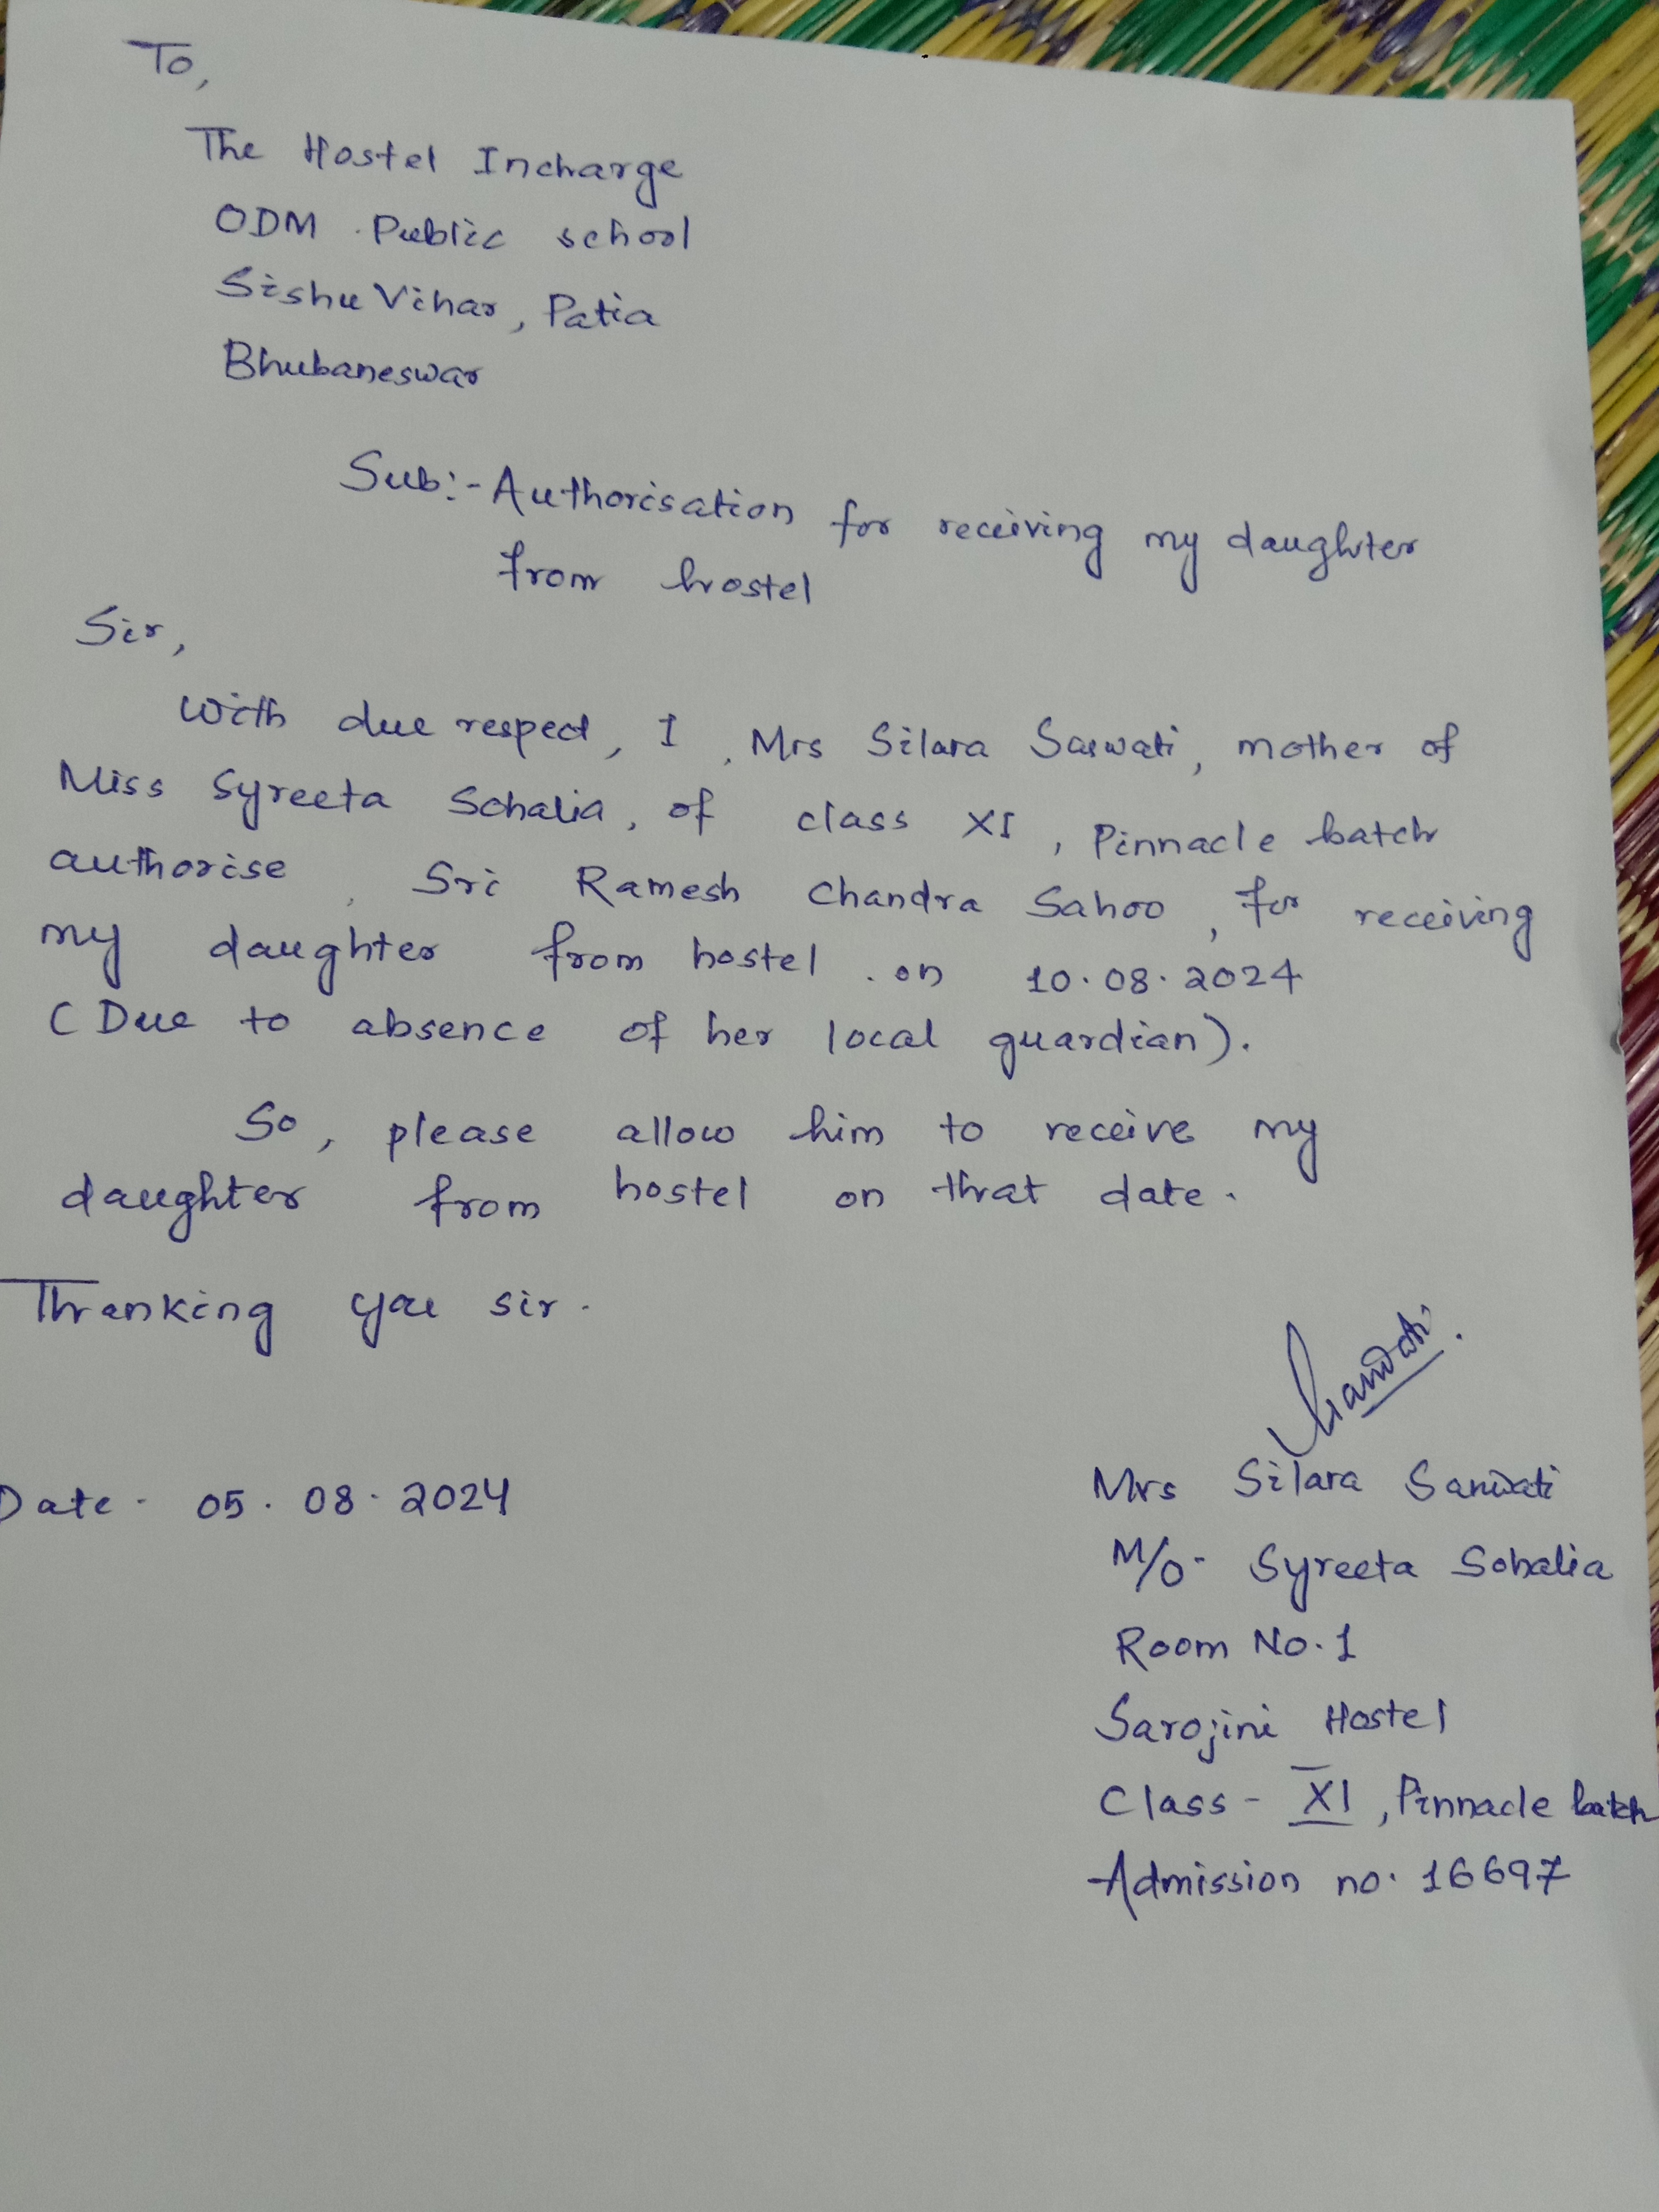 To,
The Hostel Incharge
ODM Public school
Sishu Vihar, Patia
Bhubaneswar
Sub:- Authorisation for receiving my daughter
from hostel
Sir,
With due respect, I, Mrs Silara Saswati, mother of
Miss Syreeta Sohalia, of class XI, Pinnacle batch
authorise, Sri Ramesh Chandra Sahoo, for receiving
my daughter from hostel on 10.08.2024
(Due to absence of her local guardian).
So, please allow him to receive my
daughter from hostel on that date.
Thanking you sir.
Date - 05.08.2024
Mrs Silara Saswati
M/O- Syreeta Sohalia
Room No. 1
Sarojini Hostel
Class - XI, Pinnacle batch
Admission no. 16697